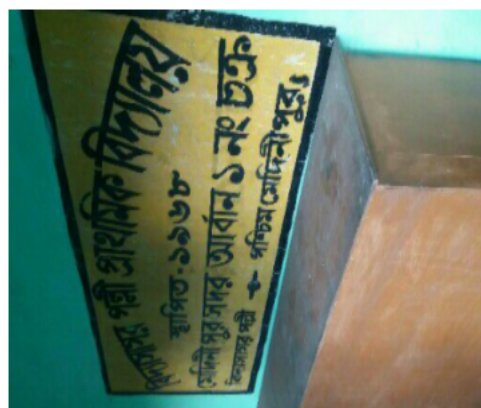 পল্লী প্রাথমিক বিদ্যালয়
স্থাপিত-১৯৬৮
মেদিনীপুর সদর আর্বান ১ নং চক্র
পল্লী পশ্চিম মেদিনীপুর